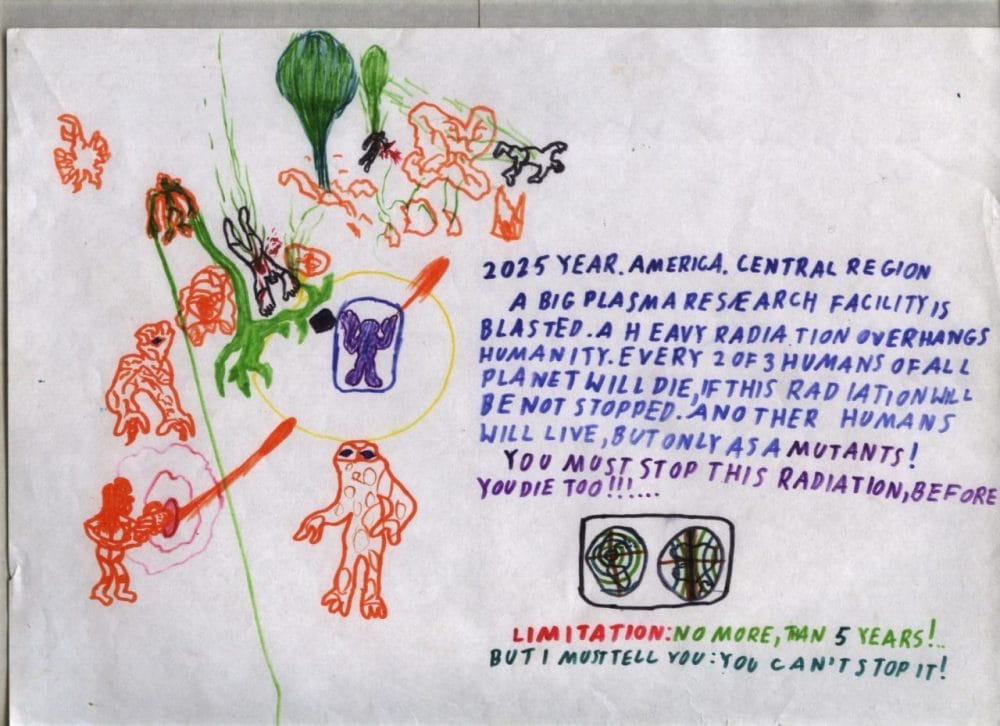 2025 YEAR. AMERICA. CENTRAL REGION
A BIG PLASMA RESEARCH FACILITY IS
BLASTED. A HEAVY RADIATION OVERHANGS
HUMANITY. EVERY 2 OF 3 HUMANS OF ALL
PLANET WILL DIE, IF THIS RADIATION WILL
BE NOT STOPPED. ANOTHER HUMANS
WILL LIVE, BUT ONLY AS A MUTANTS!
YOU MUST STOP THIS RADIATION, BEFORE
YOU DIE TOO!!!...
LIMITATION: NO MORE, THAN 5 YEARS!..
BUT I MUST TELL YOU: YOU CAN'T STOP IT!